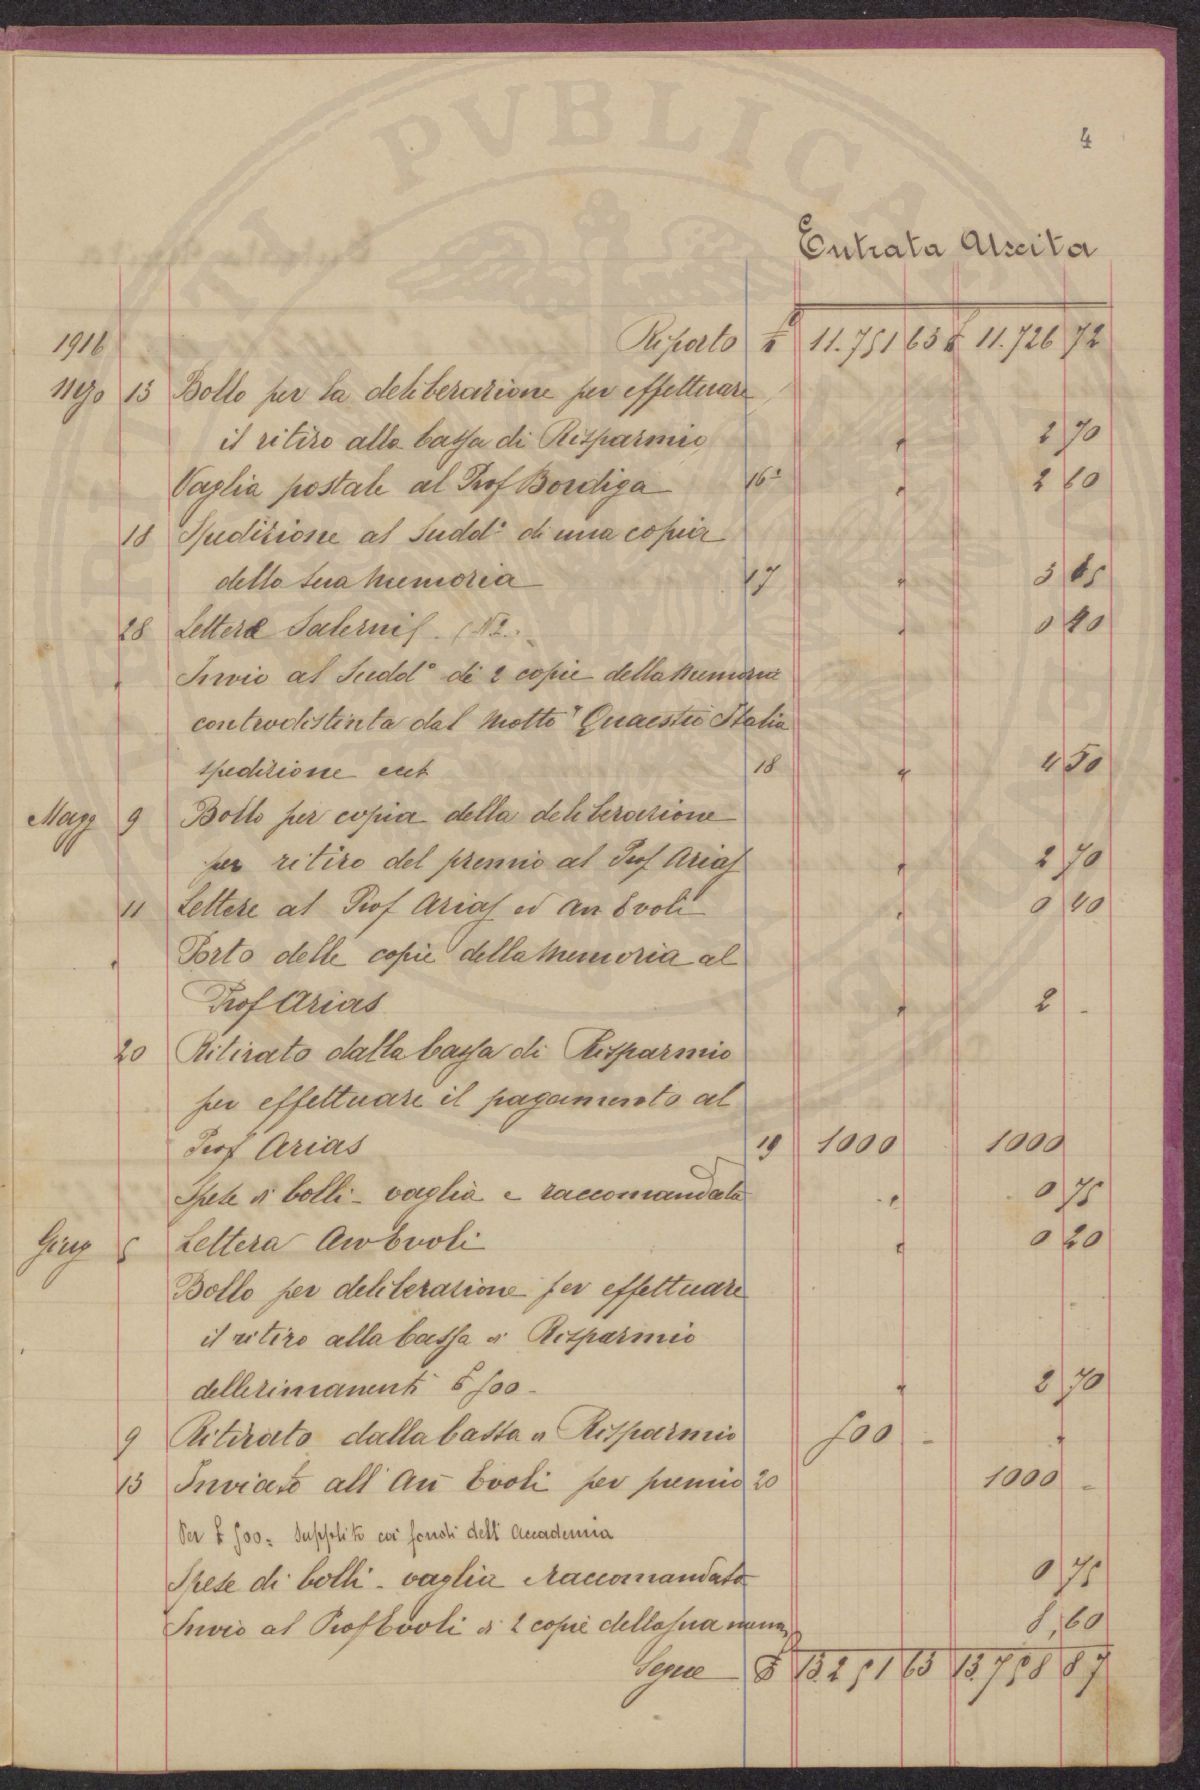 PVBLICA
4
Entrata Uscita
1916
Riporto £ 11.751 63 £ 11.726 72
Mzo 13 Bollo per la deliberazione per effettuare
il ritiro alla Cassa di Risparmio " 2 70
Vaglia postale al Prof Bordiga 16 " 2 60
18 Spedizione al Sudd° di una copia
della sua Memoria 17 " 3 65
28 Lettere Salernis (N2) " 0 40
" Invio al Sudd° di 2 copie della Memoria
controdistinta dal Motto "Quaestio Italia
spedizione ecct 18 " 4 50
Magg 9 Bollo per copia della deliberazione
per ritiro del premio al Prof Arias " 2 70
11 Lettere al Prof Arias ed Avv Evoli " 0 40
" Porto delle copie della Memoria al
Prof Arias " 2 -
20 Ritirato dalla Cassa di Risparmio
per effettuare il pagamento al
Prof Arias 19 1000 1000
Spese di bolli - vaglia e raccomandata " 0 75
Giug 5 Lettera Avv Evoli " 0 20
Bollo per deliberazione per effettuare
il ritiro alla Cassa di Risparmio
delle rimanenti £ 500 - " 2 70
9 Ritirato dalla Cassa di Risparmio 500 - "
13 Inviato all' Avv Evoli per premio 20 1000 -
Per £ 500 = supplito coi fondi dell' Accademia
Spese di bolli - vaglia e raccomandata 0 75
Invio al Prof Evoli di 2 copie della sua mem 8,60
Segue £ 13251 63 13.758 87